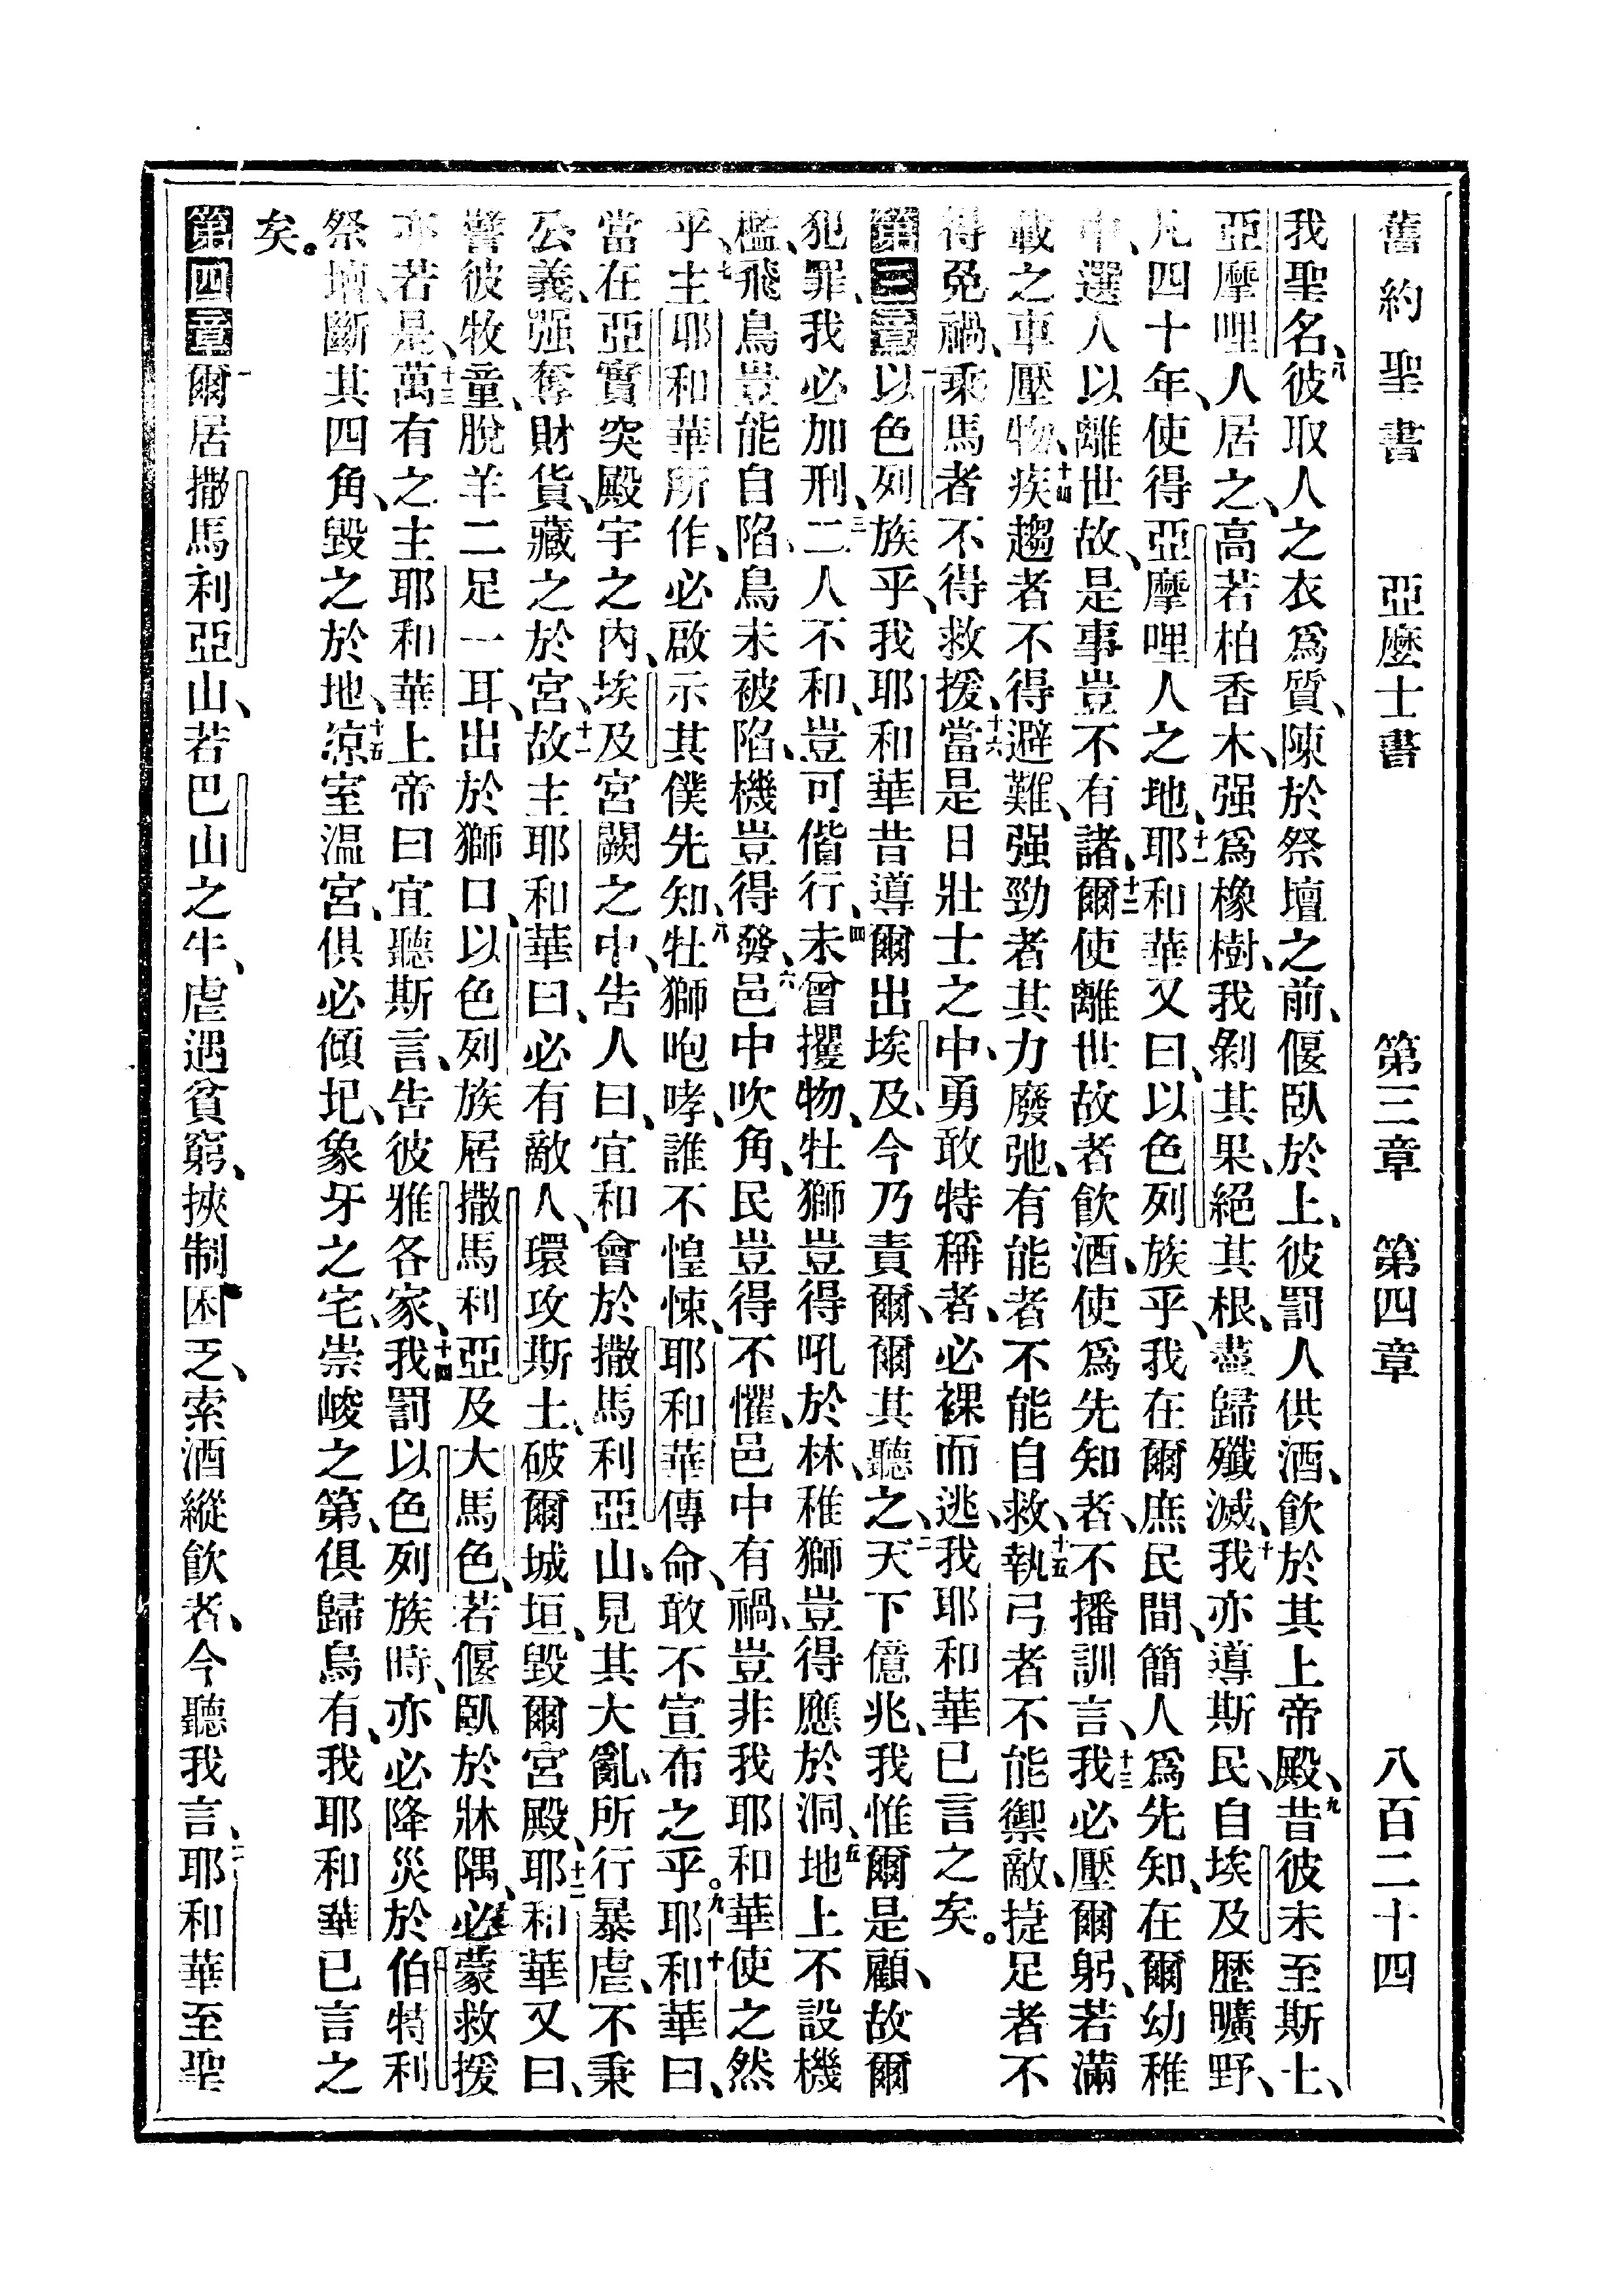 舊約聖書　亞麼士書　第三章　第四章　八百二十四
我聖名、八彼取人之衣爲質、陳於祭壇之前、偃臥於上、彼罰人供酒、飮於其上帝殿、九昔彼未至斯土、
亞摩哩人居之、高若柏香木、强爲橡樹、我剝其果、絕其根、盡歸殲滅、十我亦導斯民、自埃及歷曠野、
凡四十年、使得亞摩哩人之地、十一耶和華又曰、以色列族乎、我在爾庶民間、簡人爲先知、在爾幼稚
中、選人以離世故、是事豈不有諸、十二爾使離世故者飮酒、使爲先知者、不播訓言、十三我必壓爾躬、若滿
載之車壓物、十四疾趨者不得避難、强勁者其力廢弛、有能者不能自救、十五執弓者不能禦敵、捷足者不
得免禍、乘馬者不得救援、十六當是日壯士之中、勇敢特稱者、必裸而逃、我耶和華已言之矣。
第三章一以色列族乎、我耶和華昔導爾出埃及、今乃責爾、爾其聽之、二天下億兆、我惟爾是顧、故爾
犯罪、我必加刑、三二人不和、豈可偕行、四未曾攫物、牡獅豈得吼於林、稚獅豈得應於洞、五地上不設機
檻、飛鳥豈能自陷、鳥未被陷、機豈得發、六邑中吹角、民豈得不懼、邑中有禍、豈非我耶和華使之然
乎、七主耶和華所作、必啟示其僕先知、八牡獅咆哮、誰不惶悚、耶和華傳命、敢不宣布之乎。九耶和華曰、
當在亞實突殿宇之內、埃及宮闕之中、告人曰、宜和會於撒馬利亞山、見其大亂、所行暴虐、十不秉
公義、强奪財貨、藏之於宮、十一故主耶和華曰、必有敵人、環攻斯土、破爾城垣、毀爾宮殿、十二耶和華又曰、
譬彼牧童、脫羊二足一耳、出於獅口、以色列族居撒馬利亞及大馬色、若偃臥於牀隅、必蒙救援
亦若是、十三萬有之主耶和華上帝曰、宜聽斯言、告彼雅各家、十四我罰以色列族時、亦必降災於伯特利
祭壇、斷其四角、毀之於地、十五凉室溫宮、俱必傾圮、象牙之宅、崇峻之第、俱歸烏有、我耶和華已言之
矣。
第四章一爾居撒馬利亞山、若巴山之牛、虐遇貧窮、挾制困乏、索酒縱飮者、今聽我言、二耶和華至聖